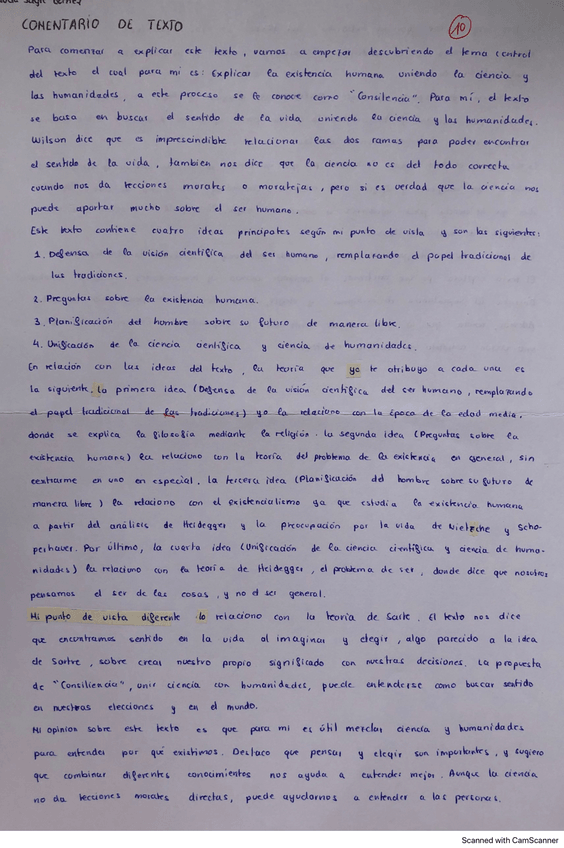 COMENTARIO DE TEXTO
10
Para comentar a explicar este texto, vamos a empezar descubriendo el tema central
del texto el cual para mi es: Explicar la existencia humana uniendo la ciencia y
las humanidades, a este proceso se le conoce como "Consilencia". Para mí, el texto
se basa en buscar el sentido de la vida uniendo la ciencia y las humanidades.
Wilson dice que es imprescindible relacionar las dos ramas para poder encontrar
el sentido de la vida, tambien nos dice que la ciencia no es del todo correcta
cuando nos da lecciones morales o moralejas, pero si es verdad que la ciencia nos
puede aportar mucho sobre el ser humano.
Este texto contiene cuatro ideas principales según mi punto de vista y son las siguientes:
1. Defensa de la visión científica del ser humano, remplarando el papel tradicional de
las tradiciones.
2. Preguntas sobre la existencia humana.
3. Planificación del hombre sobre su futuro de manera libre.
4. Unificación de la ciencia científica y ciencia de humanidades.
En relación con las ideas del texto, la teoría que yo le atribuyo a cada una es
la siguiente. La primera idea (Defensa de la visión científica del ser humano, remplarando
el papel tradicional de las tradiciones) yo la relaciono con la época de la edad media,
donde se explica la filosofía mediante la religión. La segunda idea (Preguntas sobre la
existencia humana) la relaciono con la teoría del problema de la existencia en general, sin
centrarme en uno en especial. La tercera idea (Planificación del hombre sobre su futuro de
manera libre) la relaciono con el existencialismo ya que estudia la existencia humana
a partir del análisis de Heidegger y la preocupación por la vida de Nietzche y Scho-
penhaver. Por último, la cuarta idea (Unificación de la ciencia científica y ciencia de huma-
nidades) la relaciono con la teoría de Heidegger, el problema de ser, donde dice que nosotros
pensamos el ser de las cosas, y no el ser general.
Mi punto de vista diferente lo relaciono con la teoría de Sartre. El texto nos dice
que encontramos sentido en la vida al imaginar y elegir, algo parecido a la idea
de Sartre, sobre crear nuestro propio significado con nuestras decisiones. La propuesta
de "Consiliencia", unir ciencia con humanidades, puede entenderse como buscar sentido
en nuestras elecciones y en el mundo.
Mi opinión sobre este texto es que para mi es útil mezclar ciencia y humanidades
para entender por qué existimos. Destaco que pensar y elegir son importantes, y sugiero
que combinar diferentes conocimientos nos ayuda a entender mejor. Aunque la ciencia
no da lecciones morales directas, puede ayudarnos a entender a las personas.
Scanned with CamScanner